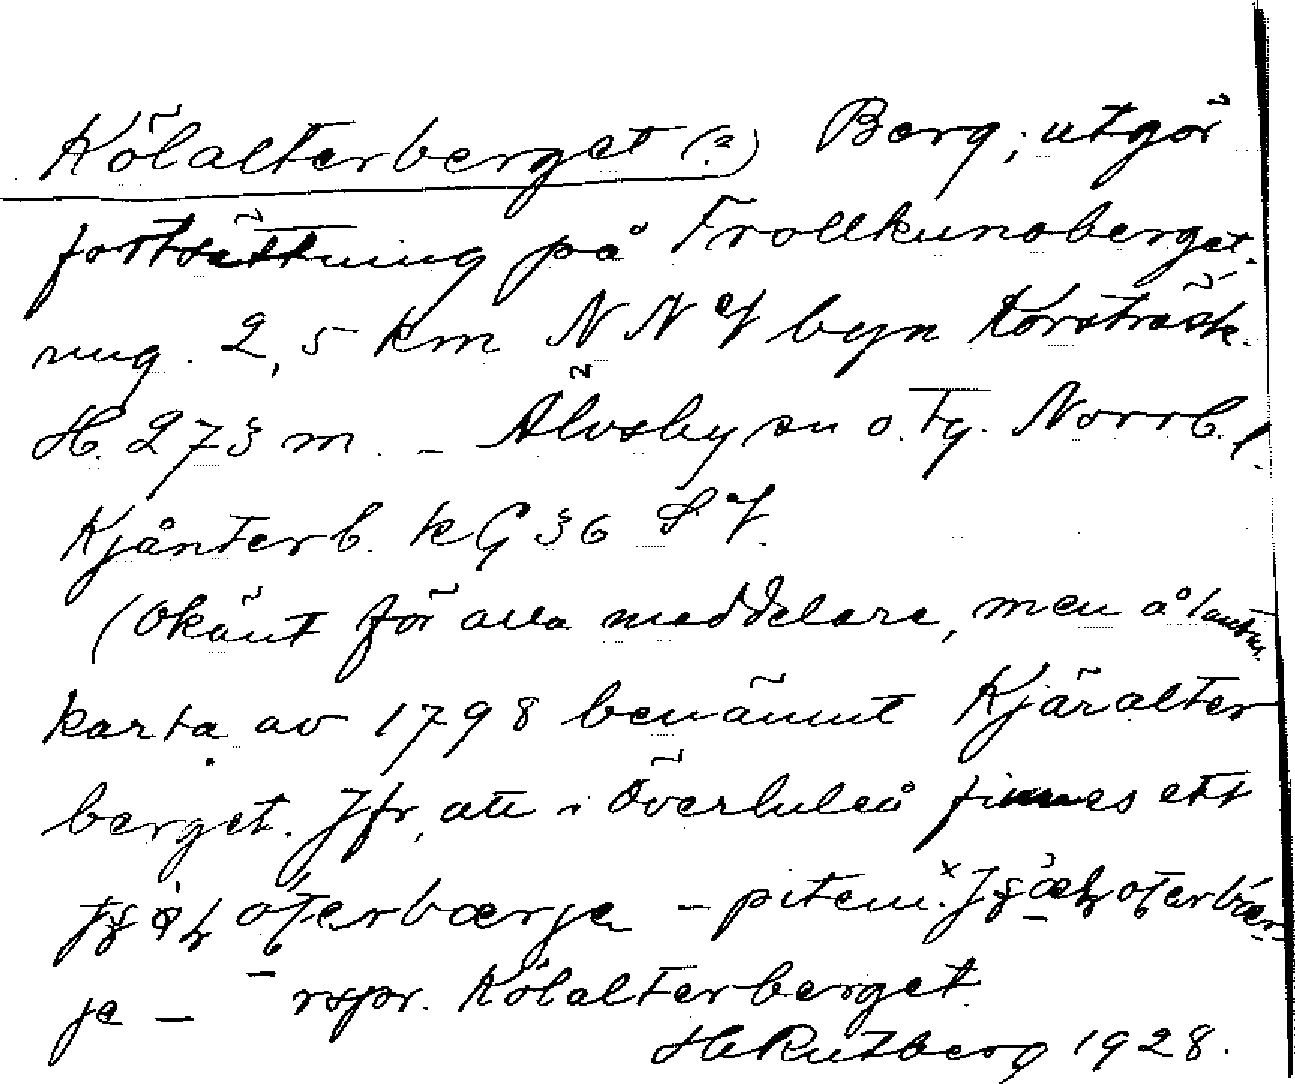 Kölalterberget (?) Berg; utgör
fortsättning på Trollkunoberget.
ung. 2,5 km NNV byn Korsträsk.
H. 273 m. – Älvsby sn o. tg. Norrb. l.
Kjånterb. kG 36 SV.
(Okänt för alla meddelare, men å lantm.
karta av 1798 benämnt Kjäralter
berget. Jfr, att i Överluleå finnes ett
– pitem.
je – rspr. Kölalterberget.
H. Rutberg 1928.